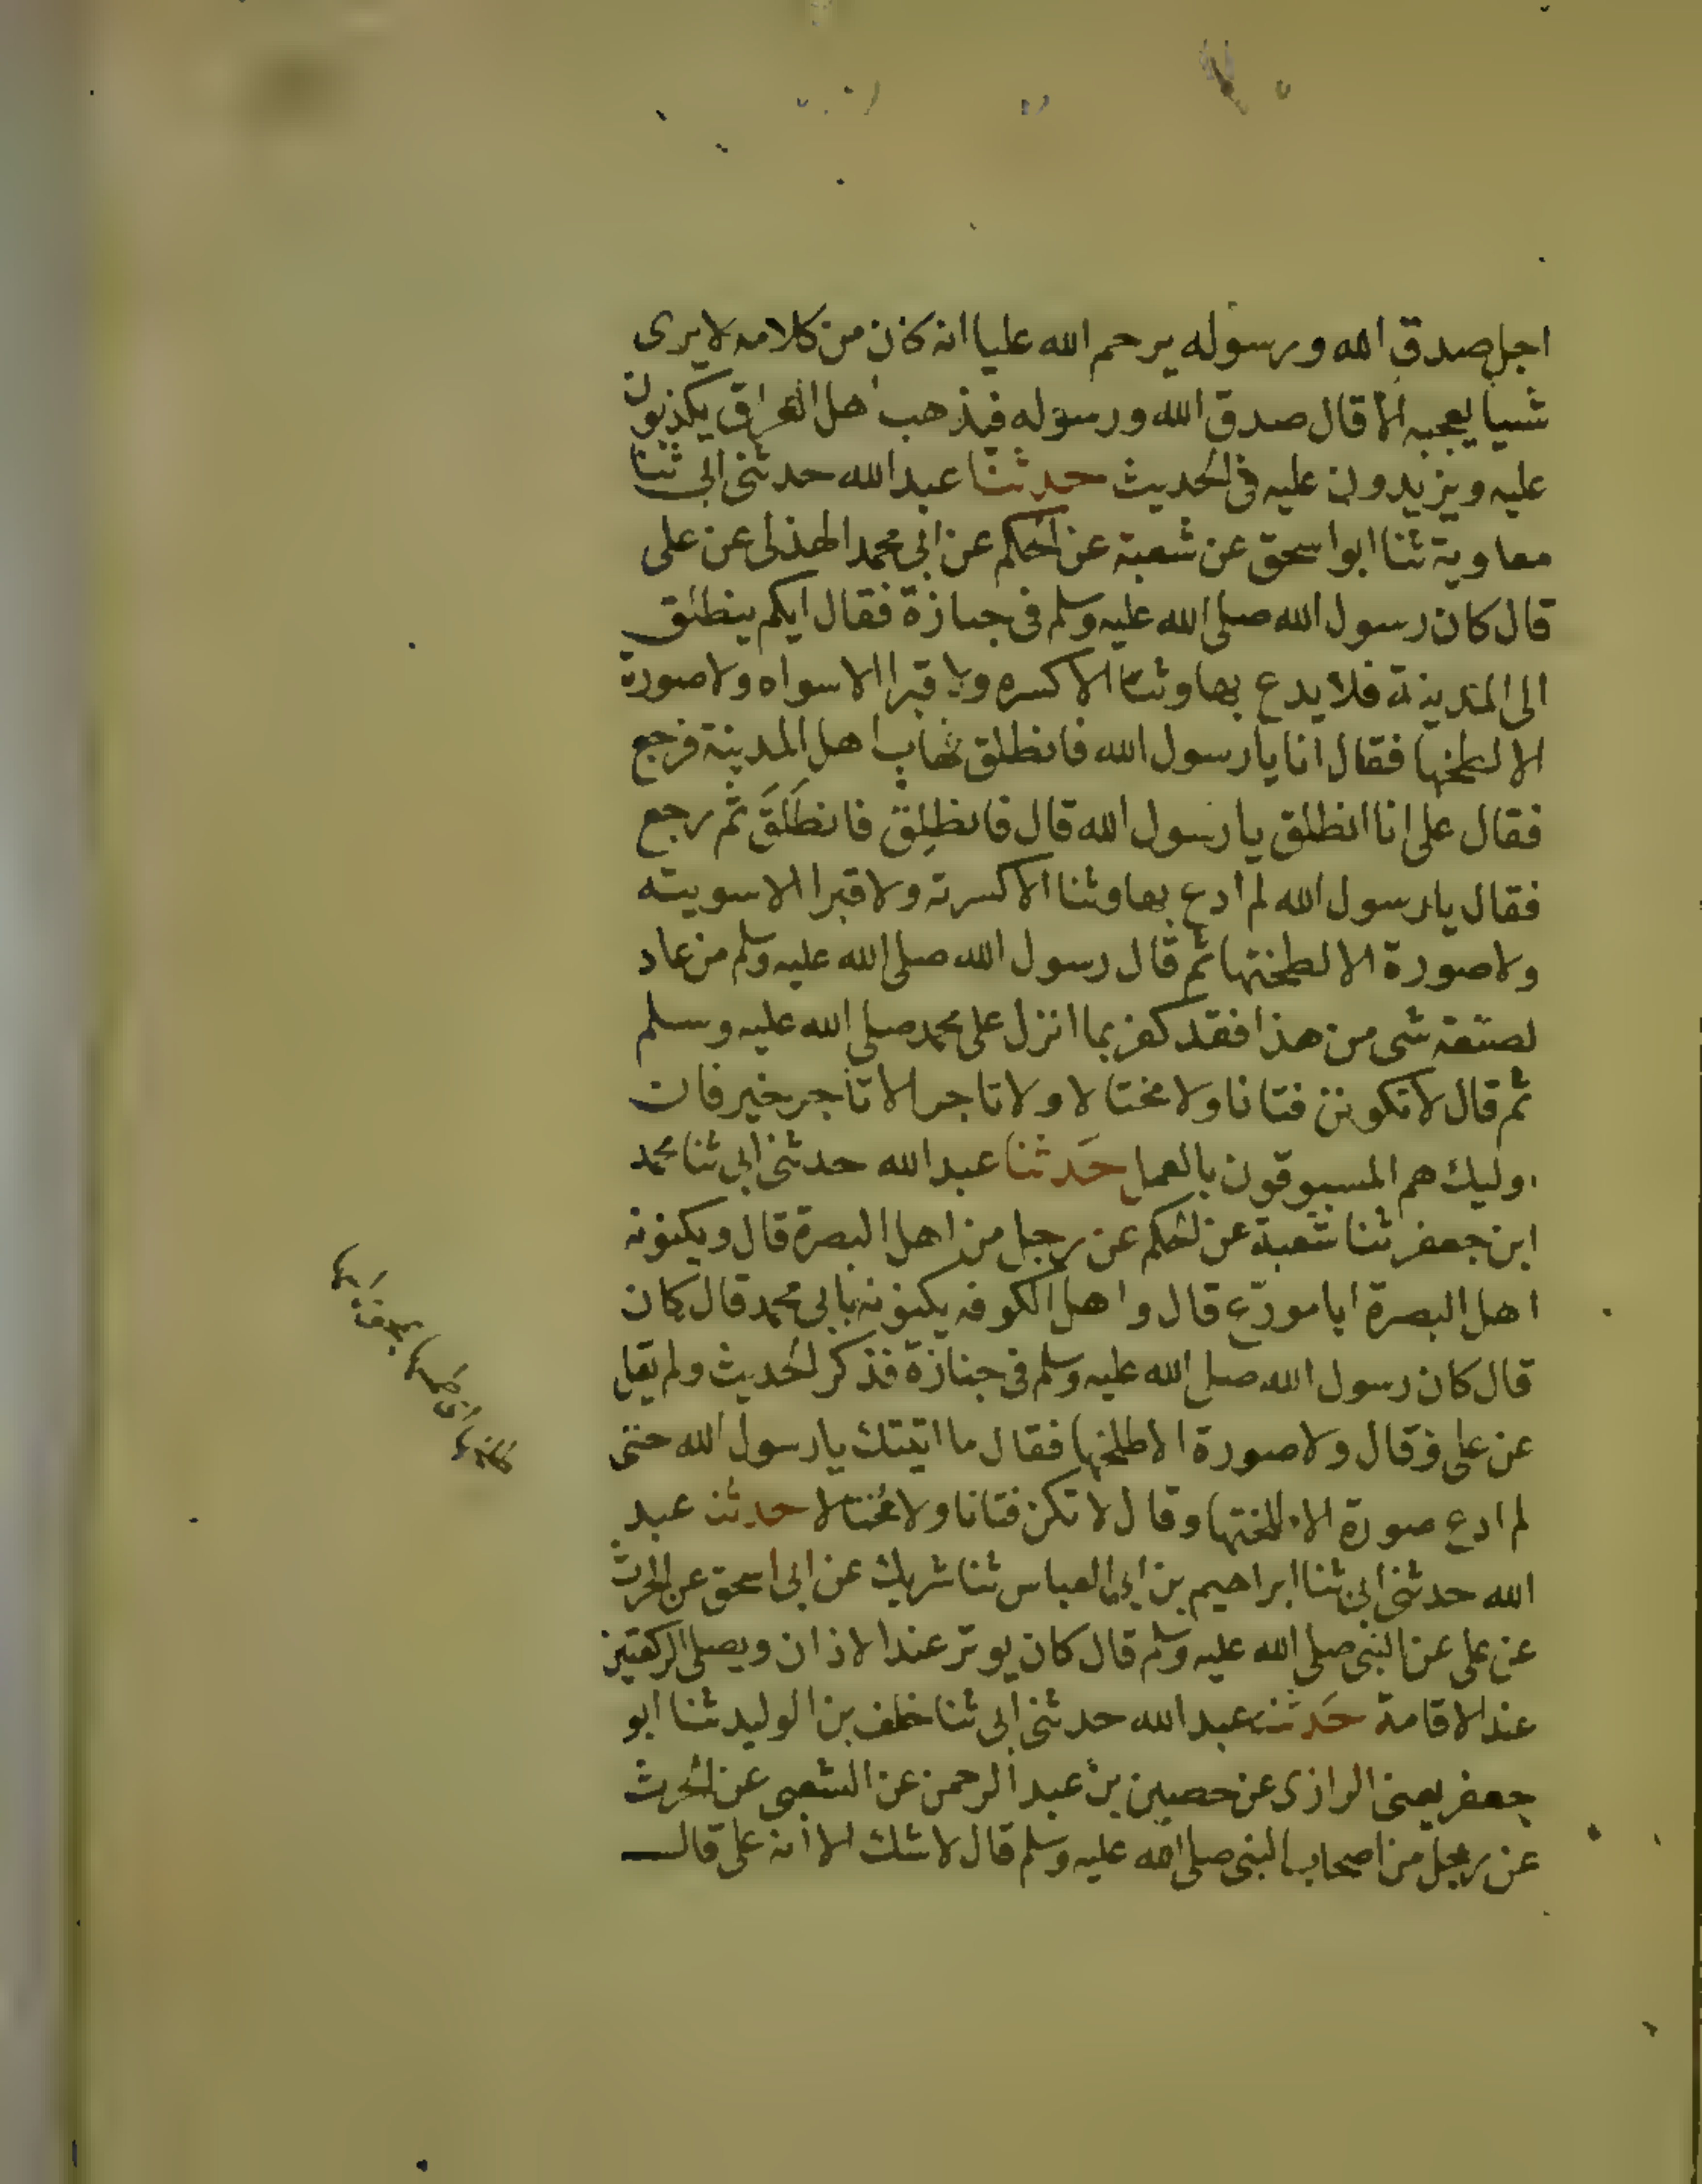 اجل صدق الله ورسوله يرحم الله عليا انه كان من كلامه لا يرى
شيئا يعجبه الا قال صدق الله ورسوله فيذهب اهل العراق يكذبون
عليه ويزيدون عليه فى الحديث حدثنا عبد الله حدثنى ابى ثنا
معاوية ثنا ابو اسحق عن شعبة عن الحكم عن ابى محمد الهذلى عن على
قال كان رسول الله صلى الله عليه وسلم فى جنازة فقال ايكم ينطلق
الى المدينة فلا يدع بها وثنا الا كسره ولا قبرا الا سواه ولا صورة
الا لطخها فقال انا يا رسول الله فانطلق فهاب اهل المدينة فرجع
فقال على انا انطلق يا رسول الله قال فانطلِق فانطلَقَ ثم رجع
فقال يا رسول الله لم ادع بها وثنا الا كسرته ولا قبرا الا سويته
ولا صورة الا لطختها ثم قال رسول الله صلى الله عليه وسلم من عاد
لصنعة شى من هذا فقد كفر بما انزل على محمد صلى الله عليه وسلم
ثم قال لا تكونن فتانا ولا مختالا ولا تاجرا الا تاجر خير فان
اوليك هم المسبوقون بالعمل حدثنا عبد الله حدثنى ابى ثنا محمد
ابن جعفر ثنا شعبة عن الحكم عن رجل من اهل البصرة قال ويكنونه
اهل البصرة ابا مورّع قال واهل الكوفه يكنونه بابى محمد قال كان
قال كان رسول الله صلى الله عليه وسلم فى جنازة فذكر الحديث ولم يقل
عن على وقال ولا صورة الا طلخها فقال ما اتيتك يا رسول الله حتى
لم ادع صورة الا طلختها وقال لا تكن فتانا ولا مُختالا حدثنا عبد
الله حدثنى ابى ثنا ابراهيم بن ابى العباس ثنا شريك عن ابى اسحق عن الحرث
عن على عن النبى صلى الله عليه وسلم قال كان يوتر عند الاذان ويصلى الركعتين
عند الاقامة حدثنا عبد الله حدثنى ابى ثنا خلف بن الوليد ثنا ابو
جعفر يعنى الرازى عن حصين بن عبد الرحمن عن الشعبى عن الحرث
عن رجل من اصحاب النبى صلى الله عليه وسلم قال لا شك الا انه على قال